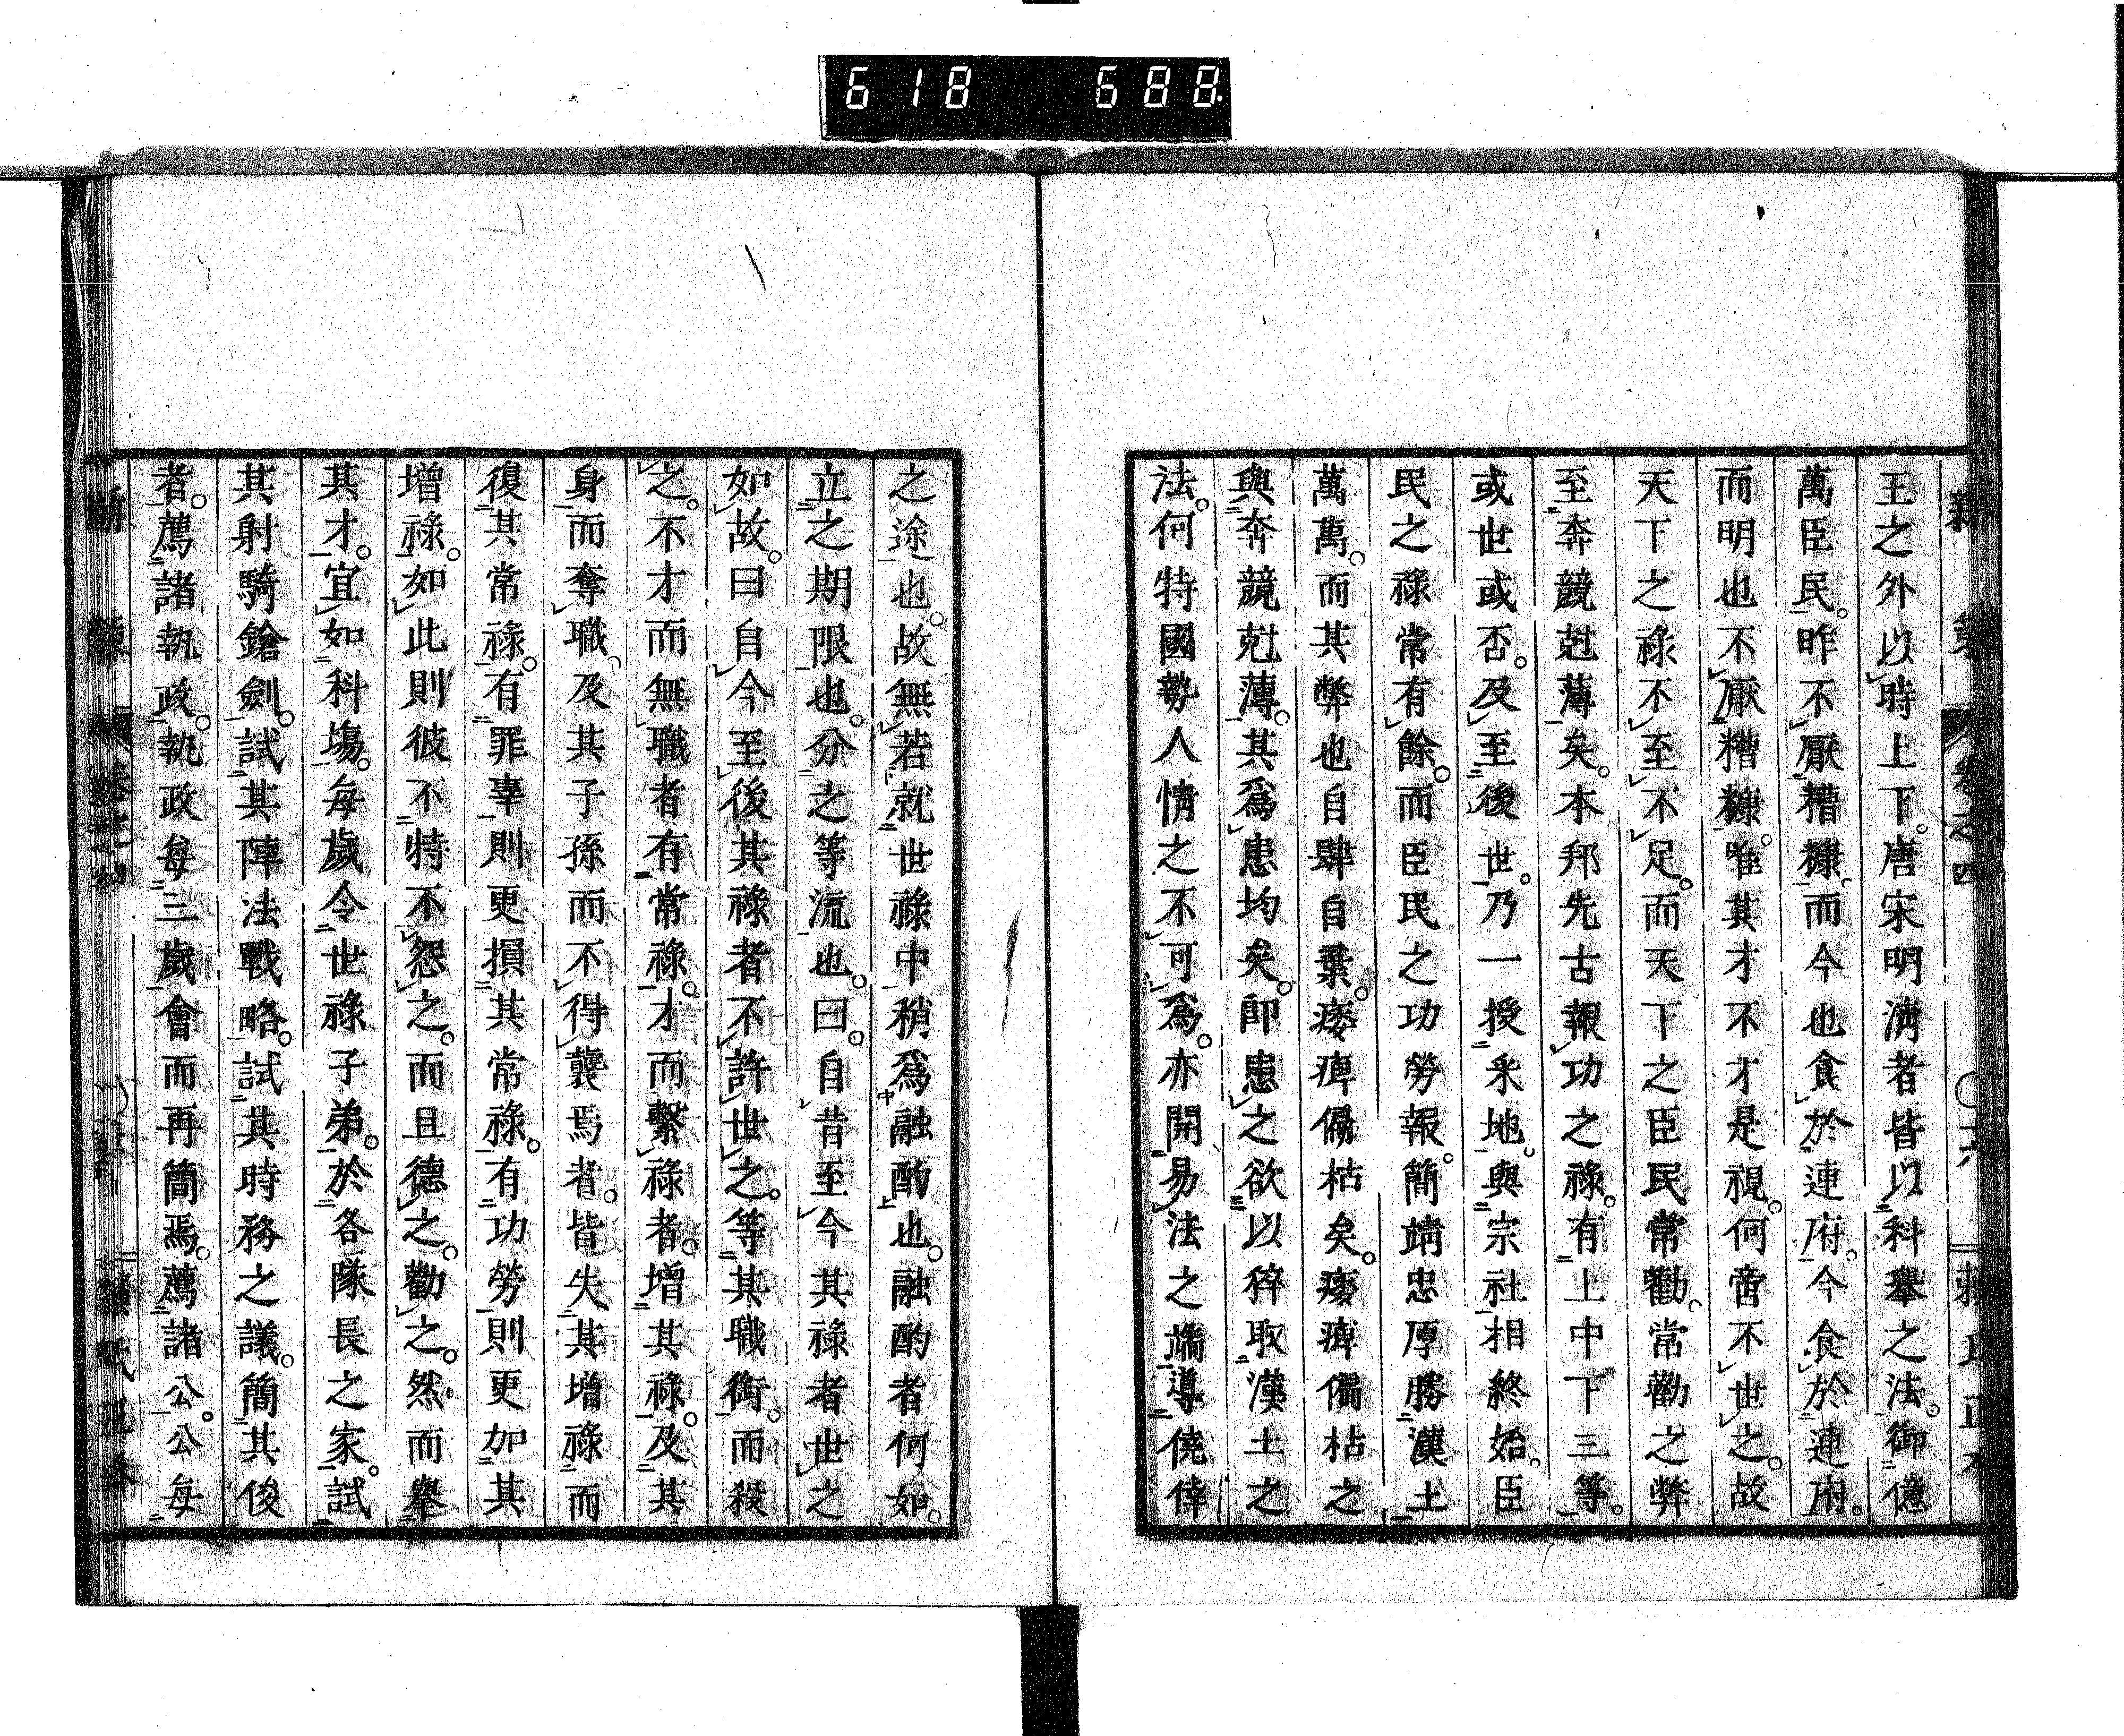 618 688
新策 卷之四 ○六 賴氏正本
王之外以時上下。唐宋明淸者皆以科擧之法。御億
萬臣民。昨不厭糟糠。而今也食於連府。今食於連府。
而明也不厭糟糠。唯其才不才是視。何啻不世之。故
天下之祿不至不足。而天下之臣民常勸。常勸之弊
至奔競尅薄矣。本邦先古報功之祿。有上中下三等。
或世或否。及至後世。乃一授采地。與宗社相終始。臣
民之祿常有餘。而臣民之功勞報。簡靖忠厚勝漢土
萬萬。而其弊也自肆自棄。痿痺偏枯矣。痿痺偏枯之
與奔競尅薄。其爲患均矣。卽患之欲以猝取漢土之
法。何特國勢人情之不可爲。亦開易法之端導僥倖
之途也。故無若就世祿中稍爲融酌也。融酌者何如。
立之期限也。分之等流也。曰。自昔至今其祿者世之
如故。曰自今至後其祿者不許世之。等其職銜。而殺
之。不才而無職者有常祿。才而繫祿者。增其祿。及其
身而奪職。及其子孫而不得襲焉者。皆失其增祿而
復其常祿。有罪辜則更損其常祿。有功勞則更加其
增祿。如此則彼不特不怨之。而且德之。勸之。然而擧
其才。宜如科場。每歲令世祿子弟。於各隊長之家。試
其射騎鎗劍。試其陣法戰略。試其時務之議。簡其俊
者。薦諸執政。執政每三歲會而再簡焉。薦諸公。公每